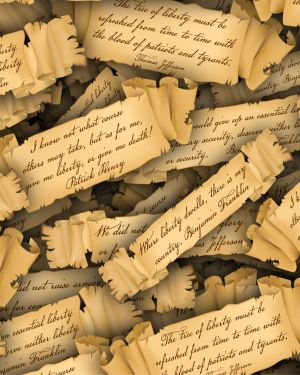 The tree of liberty must be
refreshed from time to time with
the blood of patriots and tyrants.
Thomas Jefferson
liberty
neither liberty
Franklin
I know not what course
others may take, but as for me,
give me liberty, or give me death!
Patrick Henry
would give up an essential
security, deserve neither
or security.
Where liberty dwells, there is my
country. Benjamin Franklin
We did not
glory
as Jefferson
did not raise armies
or for
essential liberty
neither liberty
Benjamin Franklin
The tree of liberty must be
refreshed from time to time with
the blood of patriots and tyrants.